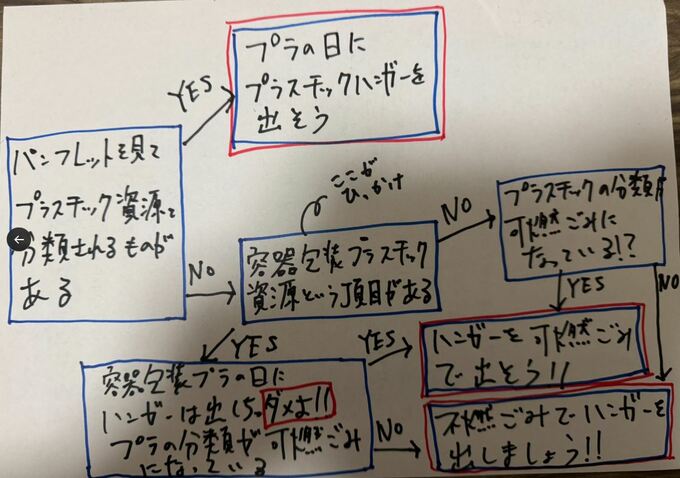 プラの日に
プラスチックハンガーを
出そう
YES
パンフレットを見て
プラスチック資源と
分類されるものが
ある
NO
ここが
ひっかけ
容器包装プラスチック
資源という項目がある
NO
プラスチックの分類が
可燃ごみに
なっている!?
YES
NO
YES
容器包装プラの日に
ハンガーは出しちゃダメよ!!
プラの分類が可燃ごみ
になっている
YES
ハンガーを可燃ごみ
で出そう!!
NO
不燃ごみでハンガーを
出しましょう!!